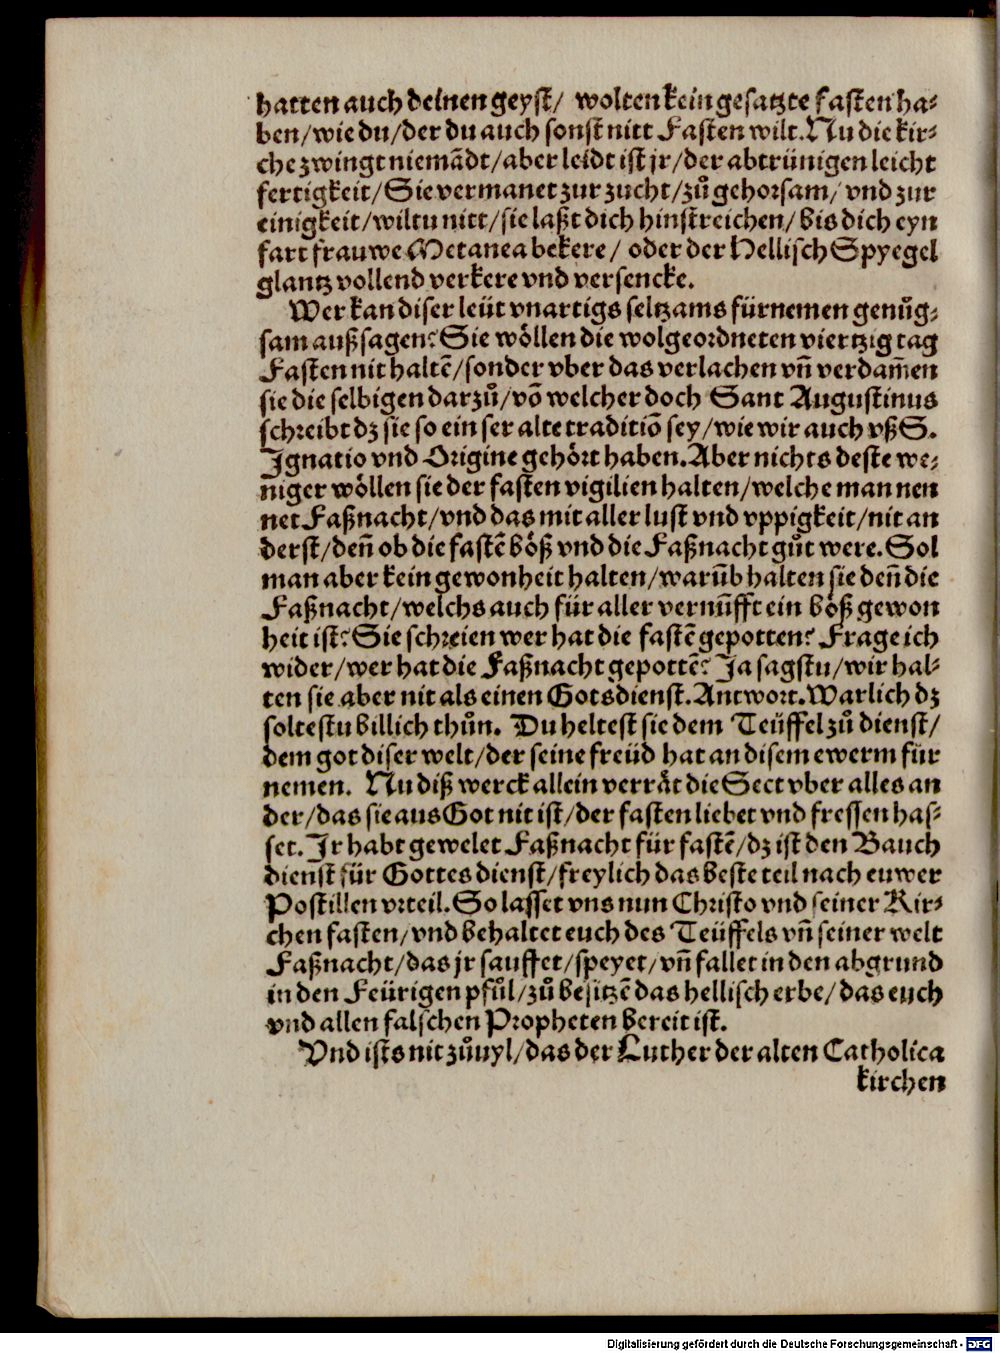 hatten auch deinen geyst/ wolten kein gesatzte fasten ha⸗
ben/wie du/der du auch sonst nitt Fasten wilt. Nu die kir⸗
che zwingt niemãdt/aber leidt ist jr/der abtrünigen leicht
fertigkeit/Sie vermanet zur zucht/zů gehorsam/ vnd zur
einigkeit/wiltu nitt/sie laßt dich hinstreichen/ bis dich eyn
fart frauwe Metanea bekere/ oder der Hellisch Spyegel
glantz vollend verkere vnd versencke.
Wer kan diser leüt vnartigs seltzams fürnemen genůg⸗
sam auß sagen? Sie wöllen die wolgeordneten viertzig tag
Fasten nit haltẽ/sonder vber das verlachen vñ verdam̃en
sie die selbigen darzů/võ welcher doch Sant Augustinus
schreibt dz sie so ein ser alte traditiõ sey/wie wir auch vß S.
Ignatio vnd Origine gehört haben. Aber nichts deste we⸗
niger wöllen sie der fasten vigilien halten/welche man nen
net Faßnacht/vnd das mit aller lust vnd vppigkeit/nit an
derst/deñ ob die fastẽ böß vnd die Faßnacht gůt were. Sol
man aber kein gewonheit halten/warũb halten sie deñ die
Faßnacht/welchs auch für aller vernũfft ein böß gewon
heit ist? Sie schreien wer hat die fastẽ gepotten? Frage ich
wider/wer hat die Faßnacht gepottẽ? Ja sagstu/wir hal⸗
ten sie aber nit als einen Gotsdienst. Antwort. Warlich dz
soltestu billich thůn. Du heltest sie dem Teüffel zů dienst/
dem got diser welt/der seine freüd hat an disem ewerm für
nemen. Nu diß werck allein verrät die Sect vber alles an
der/das sie aus Got nit ist/der fasten liebet vnd fressen has⸗
set. Ir habt gewelet Faßnacht für fastẽ/dz ist den Bauch
dienst für Gottes dienst/freylich das beste teil nach euwer
Postillen vrteil. So lasset vns nun Christo vnd seiner Kir⸗
chen fasten/vnd behaltet euch des Teüffels vñ seiner welt
Faßnacht/das jr sauffet/speyet/vñ fallet in den abgrund
in den Feürigen pfůl/zů besitzẽ das hellisch erbe/das euch
vnd allen falschen Propheten bereit ist.
Vnd ists nit zůuyl/das der Luther der alten Catholica
kirchen
Digitalisierung gefördert durch die Deutsche Forschungsgemeinschaft - DFG